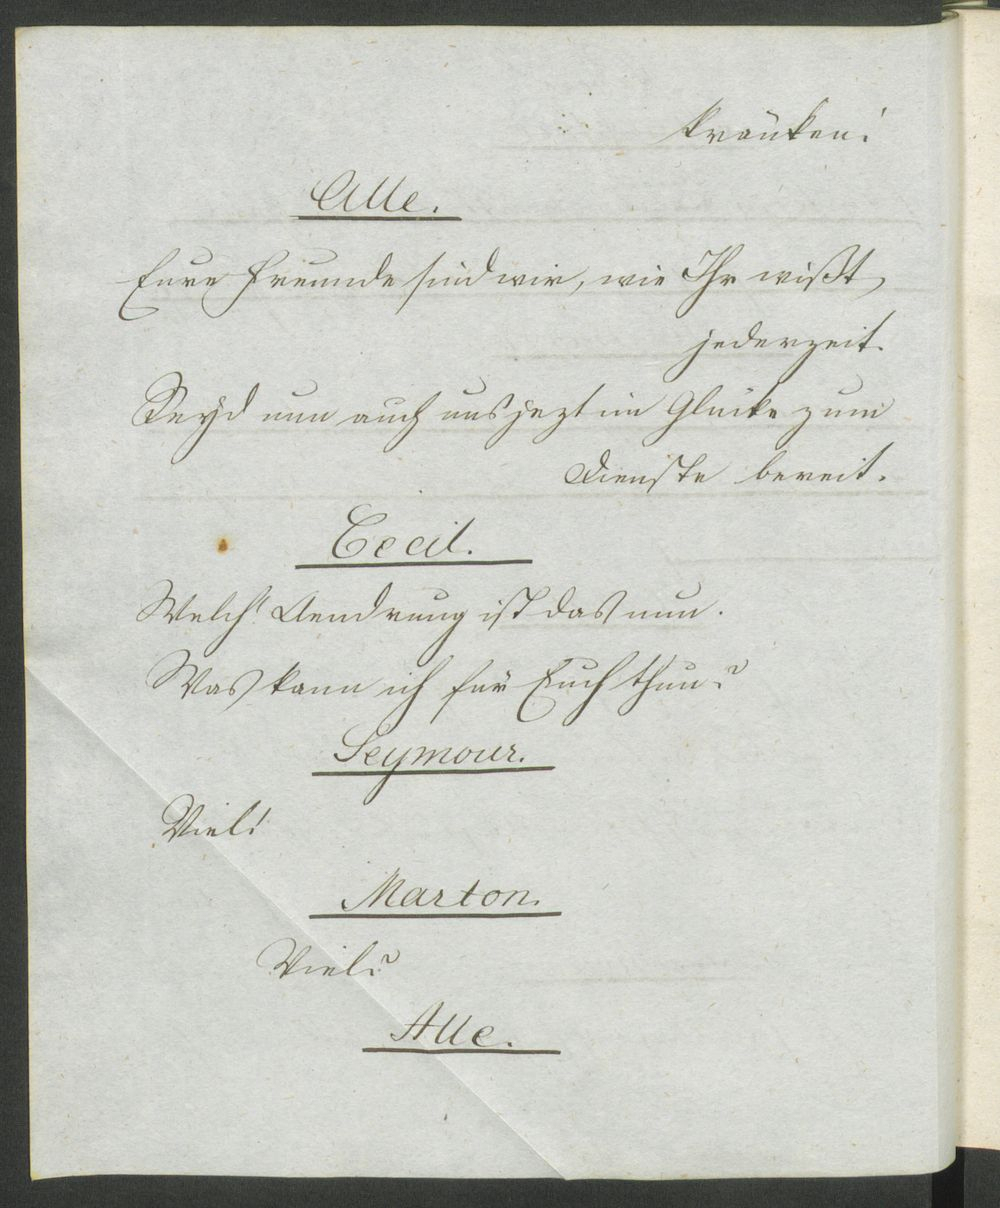 kränken!
Alle.
Eure Freunde sind wir, wie Ihr wißt,
jederzeit.
Seyd nun auch uns jezt im Glücke zum
Dienste bereit.
Cecil.
Welch' Aendrung ist das nun.
Was kann ich für Euch thun?
Seymour.
Viel!
Marton.
Viel?
Alle.